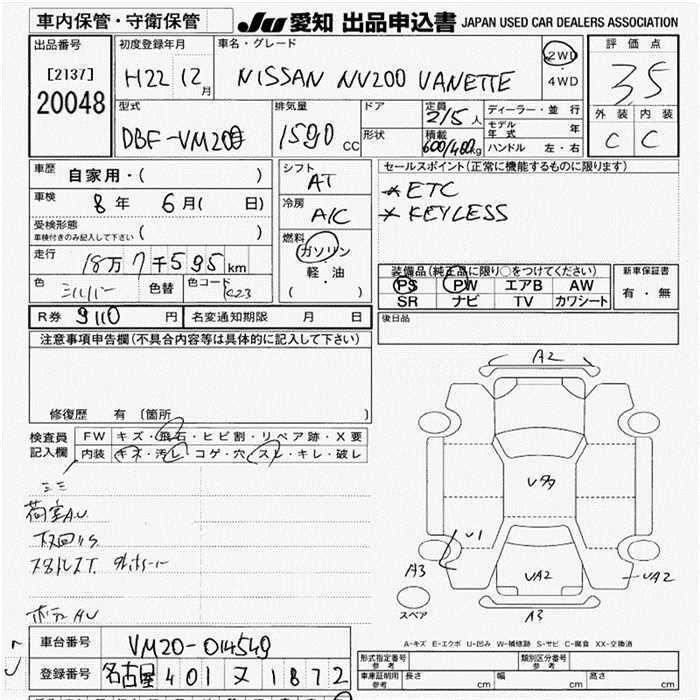 車内保管・守衛保管
JU 愛知 出品申込書 JAPAN USED CAR DEALERS ASSOCIATION
出品番号
[2137]
20048
初度登録年月
H22 12月
車名・グレード
NISSAN NV200 VANETTE
2WD
4WD
評価点
3.5
外装 内装
C C
型式
DBF-VM20
排気量
1590 cc
ドア
形状
定員
2/5 人
積載
600/400kg
ディーラー・並行
モデル年式 年
ハンドル 左・右
車歴
自家用・( )
車検
8年 6月( 日)
受検形態
車検付きのみ記入して下さい ( )
走行
18万7千595km
色
シルバー
色替
色コード
K23
シフト
AT
冷房
A/C
燃料
ガソリン
軽・油
( )
セールスポイント(正常に機能するものに限ります)
*ETC
*KEYLESS
装備品(純正品に限り○をつけてください)
PS PW エアB AW
SR ナビ TV カワシート
新車保証書
有・無
後日品
R券 9110 円
名変通知期限 月 日
注意事項申告欄(不具合内容等は具体的に記入して下さい)
修復歴 有 〔箇所 〕
検査員
記入欄
FW キズ・飛石・ヒビ割・リペア跡・X要
内装 キズ・汚レ・コゲ・穴・スレ・キレ・破レ
荷室AU
ボデーAU
A2
U多
U1
A3
UA2
UA2
A3
スペア
A-キズ E-エクボ U-凹み W-補修跡 S-サビ C-腐食 XX-交換済
車台番号
VM20-014549
登録番号
名古屋 401 ヌ 1872
型式指定番号
参考
類別区分番号
参考
車庫証明用
参考
長さ cm
幅 cm
高さ cm